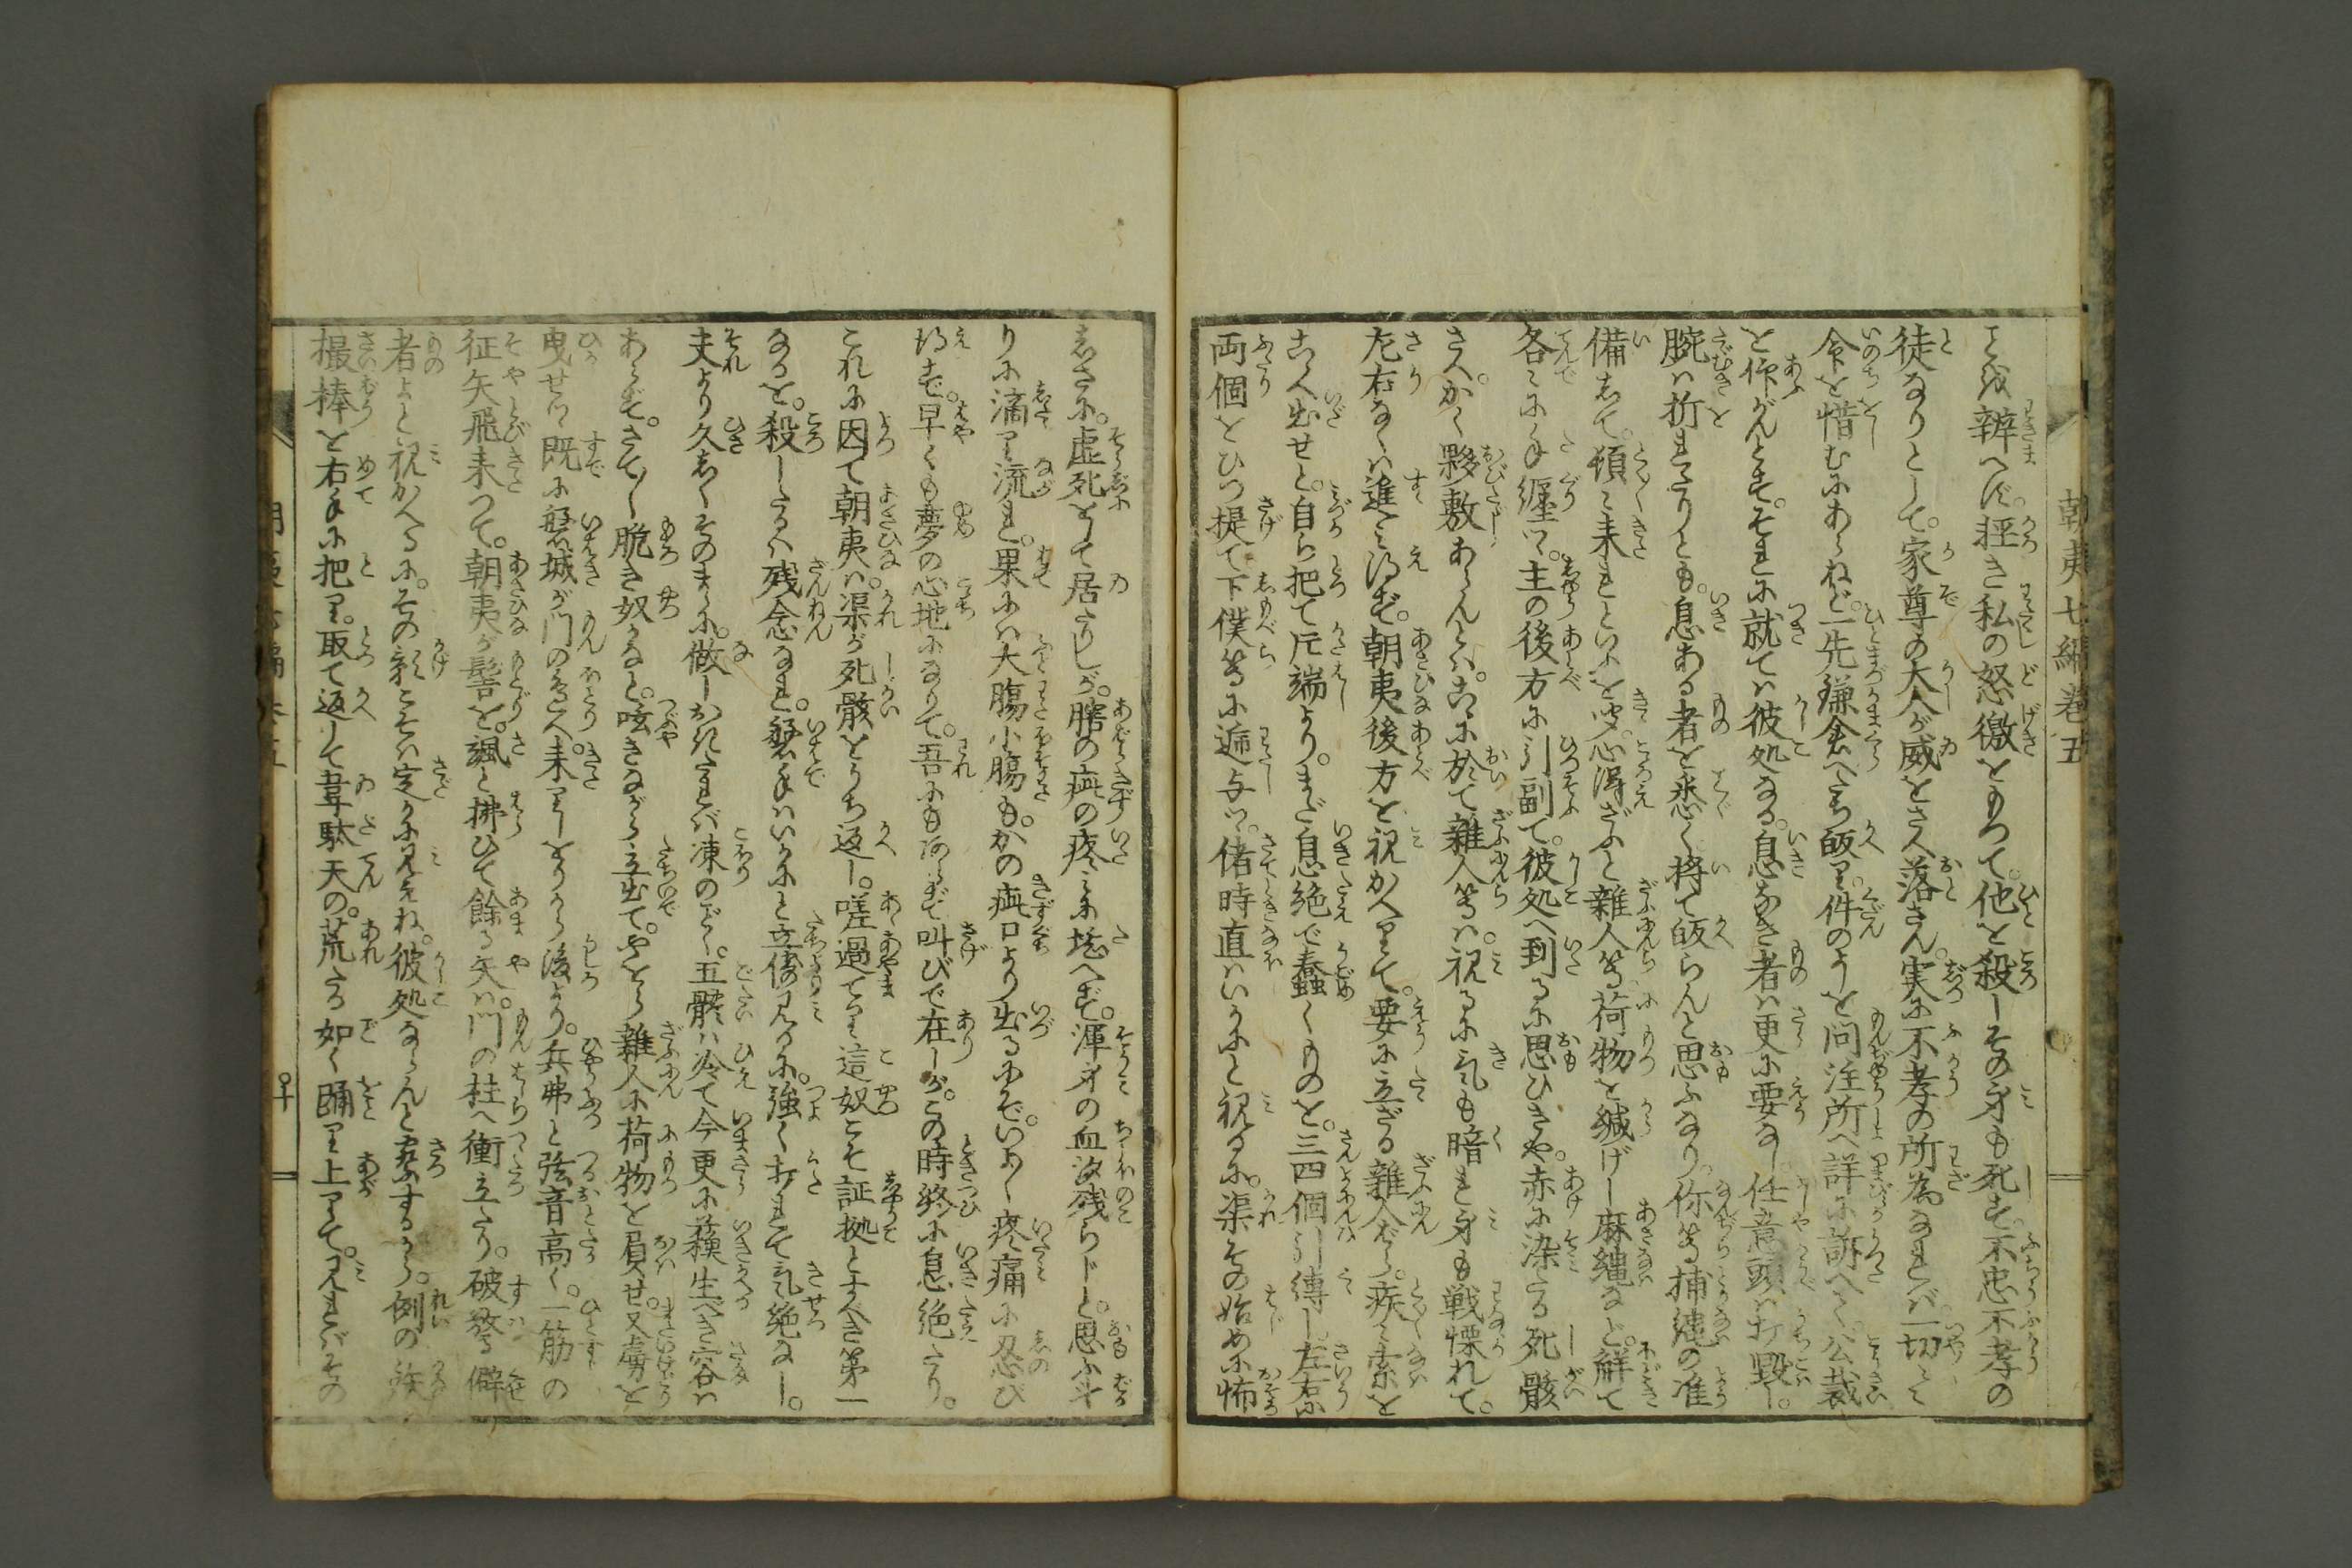 とを辨へず。軽き私の怒激をもつて。他を殺しその身も死す。不忠不孝の
徒なりとして。家尊の大人が威をさへ落さん。実に不孝の所為なれば。一切
命を惜むにあらねど。一先鎌倉へたち皈り。件のよしを問注所へ詳に訴へて。公裁
を仰がんとす。それに就ては彼処なる。息なき者は更に要なし。任意頭は打毀し。
腕は折れたりとも。息ある者を悉く将て皈らんと思ふなり。你等捕縄の准
備して。頓て来れといふを聴。心得ざふと雑人等。荷物を緘げし麻縄など。解て
各々にたぐり纏つ。主の後方に引副て。彼処へ到るに思ひきや。赤に染たる死骸
さへ。かく夥敷あらんとは。こゝに於て雑人等は。視るに気も暗れ身も戦慄れて。
左右なくは進み得ず。朝夷後方を視かへりて。要に立ざる雑人ばら。疾々索を
こゝへ出せと。自ら把て片端より。まだ息絶で蠢くものを。三四個引縛し。左右に
両個をひつ提て下僕等に逓与つ。偖時直はいかにと視るに。渠その始めに怖
しさに。虚死して居たりしが。膝の疵の疼みに堪へず。渾身の血汐残らじと。思ふ斗
りに滴り流れ。果には大腸小腸も。かの疵口より出るにぞ。いよ〳〵疼痛に忍び
得ず。早くも夢の心地になりて。吾にもあらず叫びて在しが。この時終に息絶たり。
これに因て朝夷は。渠が死骸をうち返し。嗟過てり這奴こそ証拠とすべき第一
なるを。殺したるは残念なれ。磐手はいかにと立倚見るに。強く打れて気絶なし。
夫より久しくそのまゝに。做しおかれたれば凍のごとく。五體は冷て今更に蘇生べき容は
あらず。さて〳〵脆き奴かなと。呟きながら立出て。やをら雑人に荷物を肩せ。又虜を
曳せつゝ既に磐城が門のほとりへ。来りしをりから後より。兵弗と弦音高く。一筋の
征矢飛来つて。朝夷が髻を。颯と拂ひて餘る矢は。門の柱へ衝立たり。破驚癖
者よと視かへるに。その影こそは定かに見えね。彼処ならんと察するから。例の鉄
撮棒を右手に把り。取て返して韋駄天の。荒たる如く踊り上りて。見ればその
朝夷七編巻五